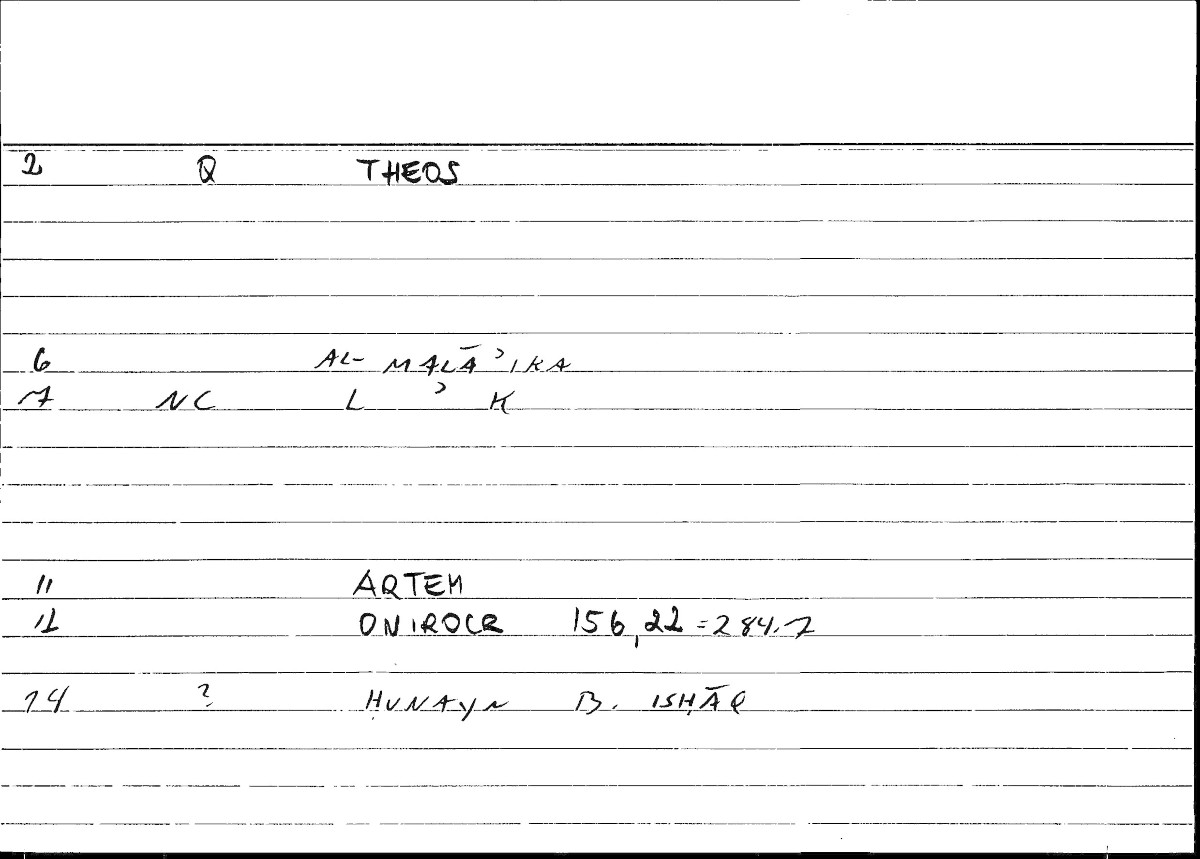 2 Q THEOS
6 AL- MALĀʾIKA
7 NC L ʾ K
11 ARTEM
12 ONIROCR 156,22 = 284.7
14 ? ḤUNAYN B. ISḤĀQ